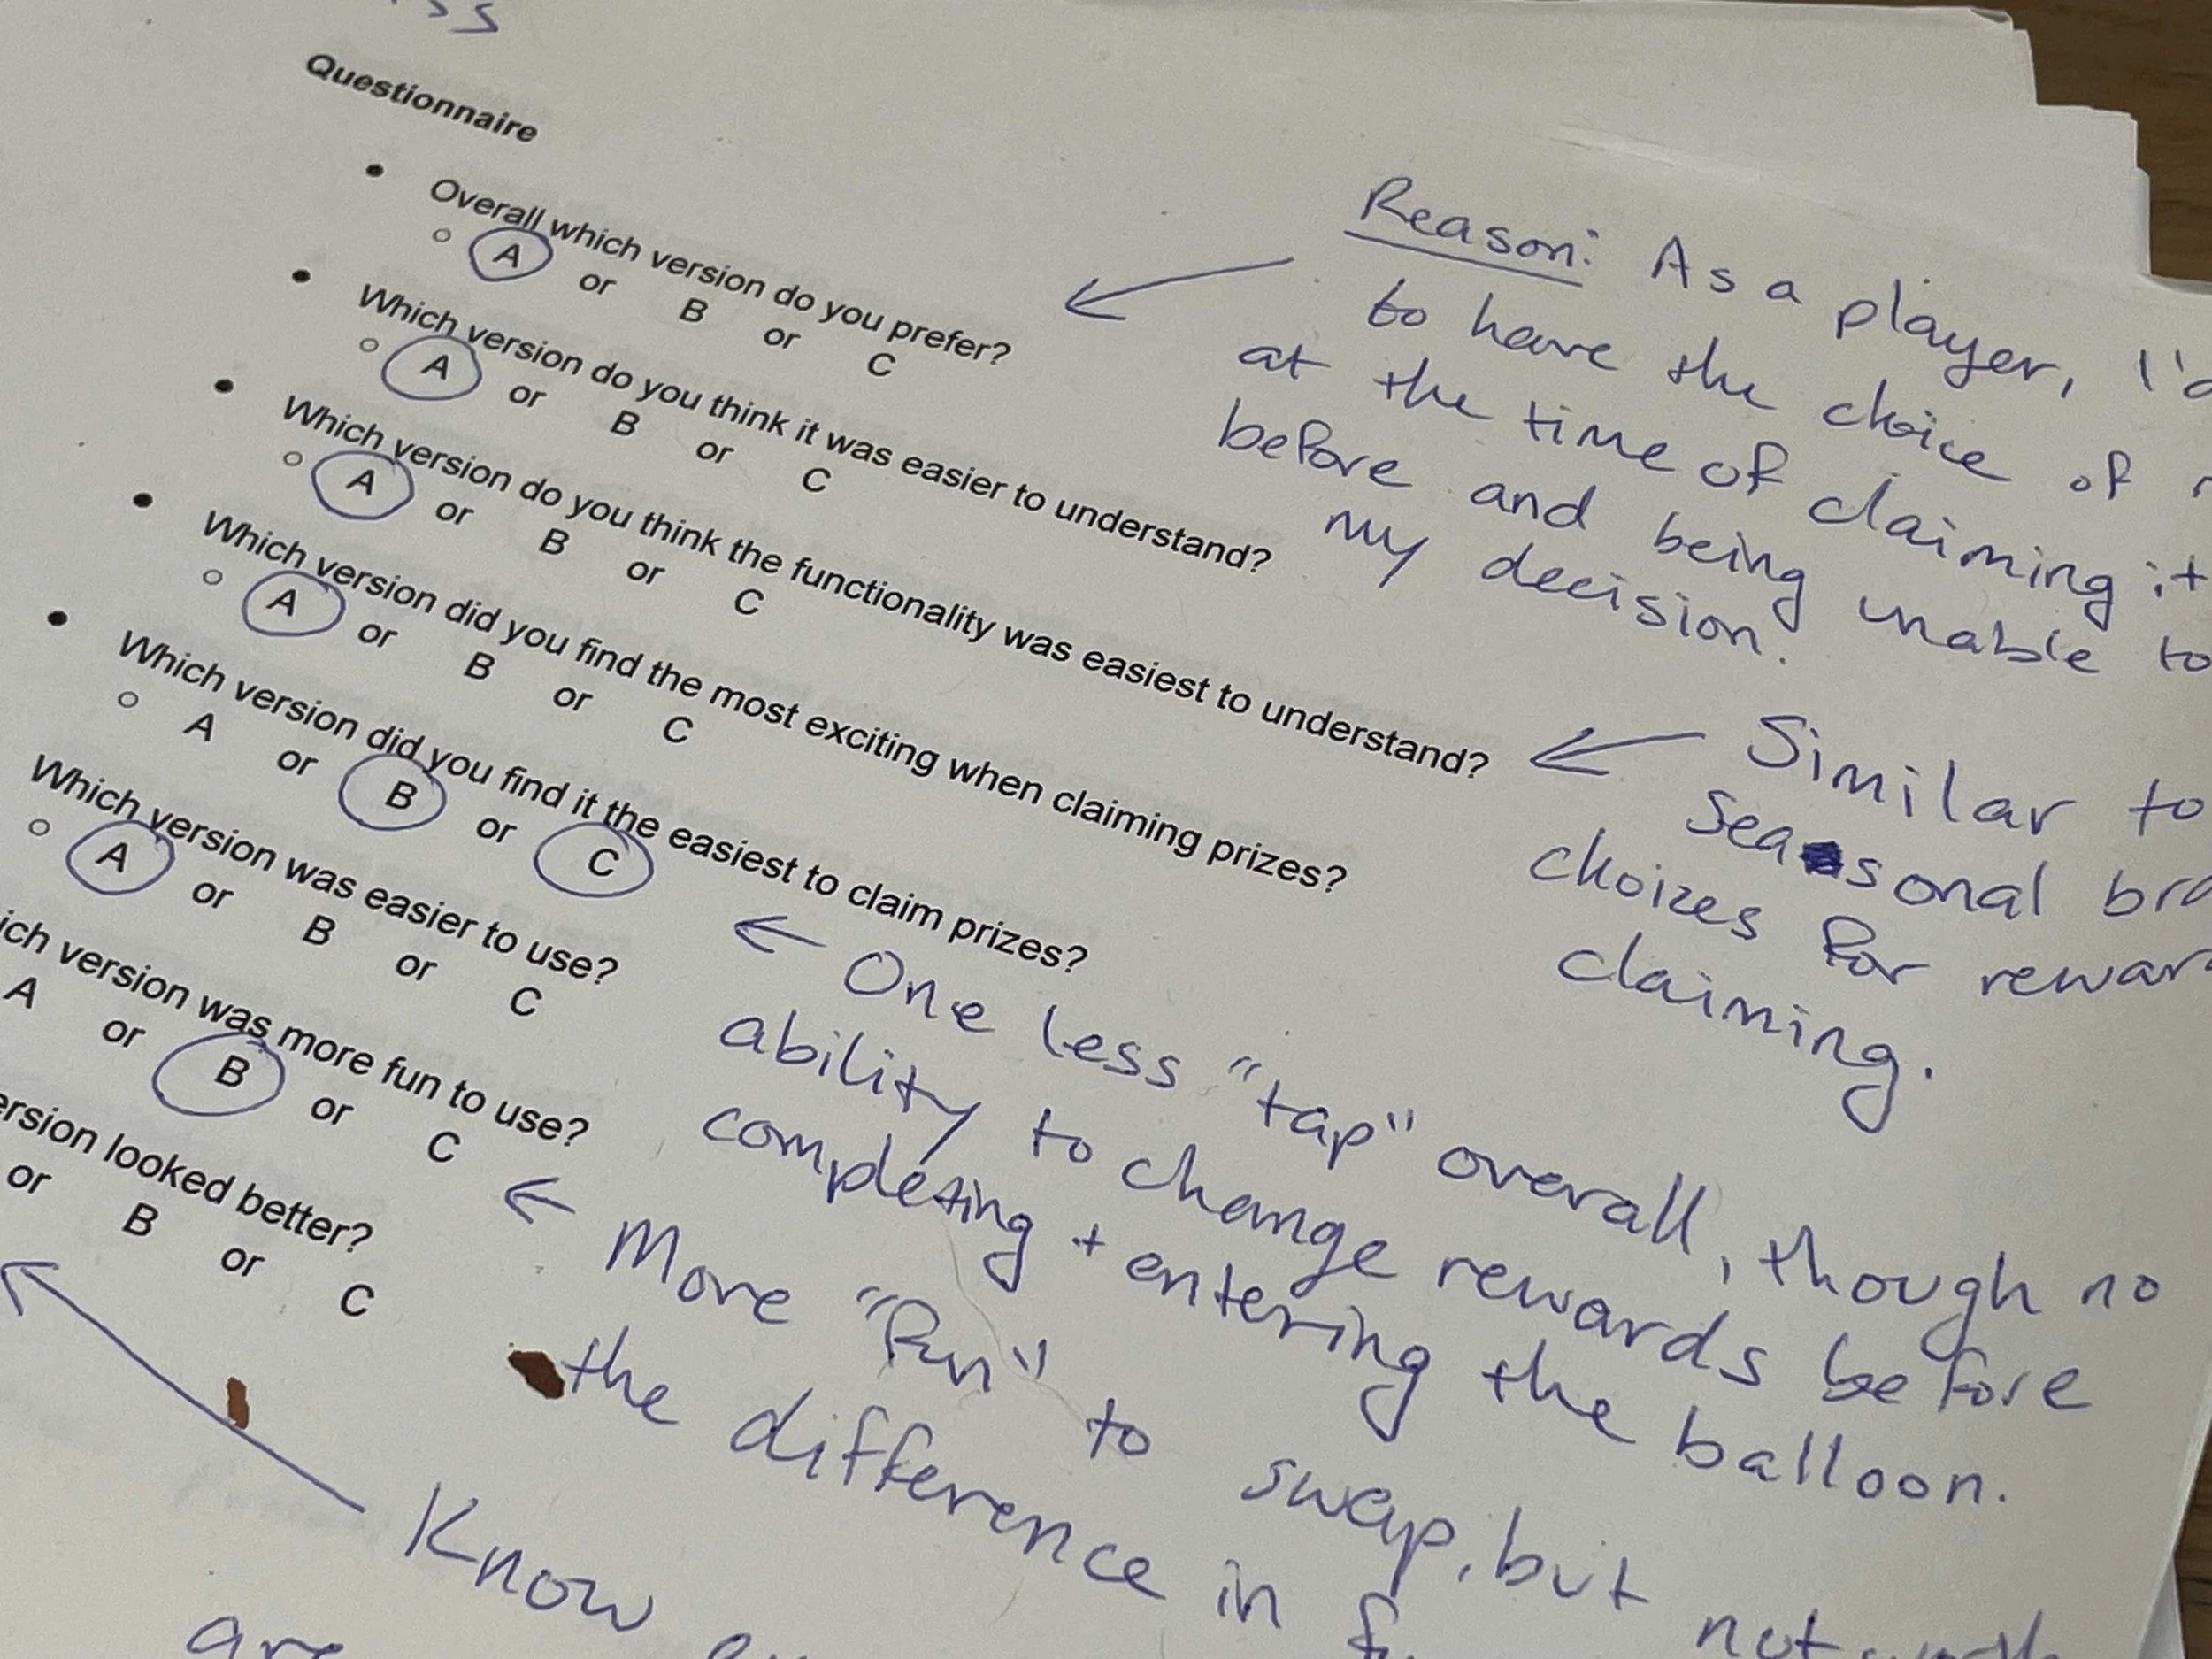 Questionnaire
Overall which version do you prefer?
A or B or C
Which version do you think it was easier to understand?
A or B or C
Which version do you think the functionality was easiest to understand?
A or B or C
Which version did you find the most exciting when claiming prizes?
A or B or C
Which version did you find it the easiest to claim prizes?
A or B or C
Which version was easier to use?
A or B or C
version was more fun to use?
A or B or C
looked better?
or B or C
Reason: As a player,
to have the choice of
at the time of claiming it
before and being unable to
my decision.
Similar to
Seasonal
choizes for
claiming.
One less "tap" overall, though no
ability to change rewards before
completing + entering the balloon.
More "fun" to swap, but not
the difference in
Know
are